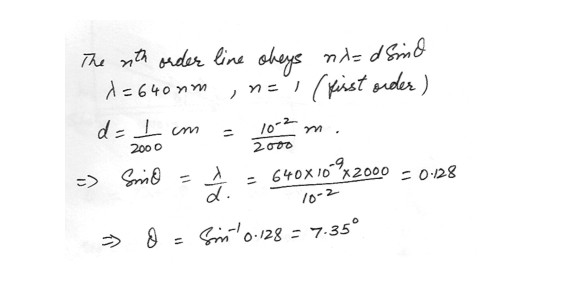 The nth order line obeys nλ = d Sinθ
λ = 640 nm , n = 1 (first order)
d = 1/2000 cm = 10⁻²/2000 m .
=> Sinθ = λ/d. = 640×10⁻⁹×2000/10⁻² = 0.128
=> θ = Sin⁻¹ 0.128 = 7.35°